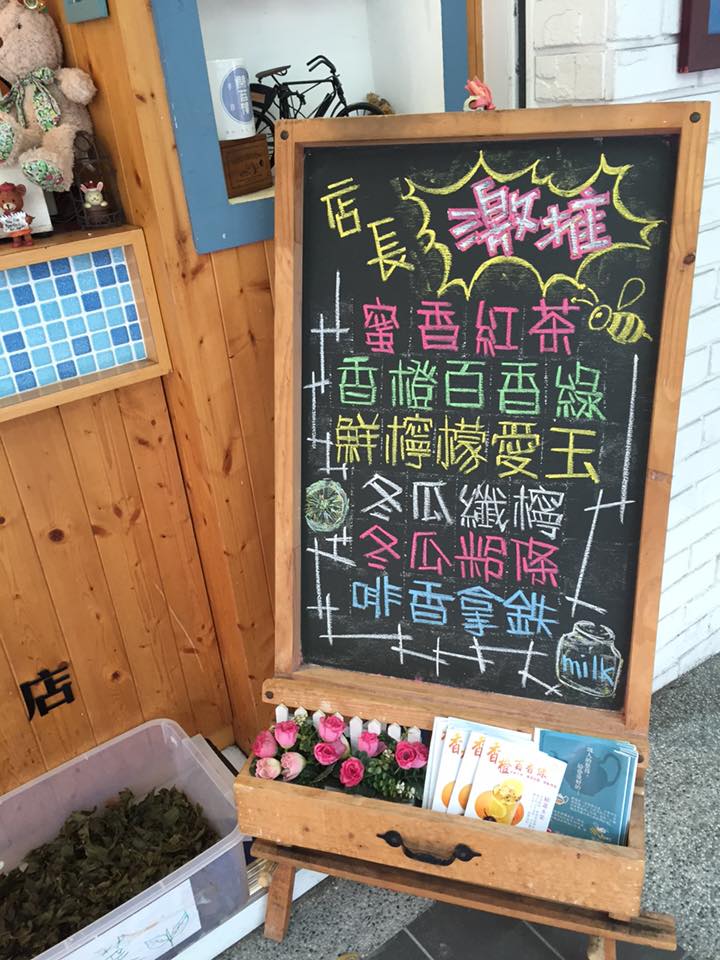 店長
激推
蜜香紅茶
香橙百香綠
鮮檸檬愛玉
冬瓜纖檸
冬瓜粉條
啡香拿鐵
milk
店
香橙百香綠